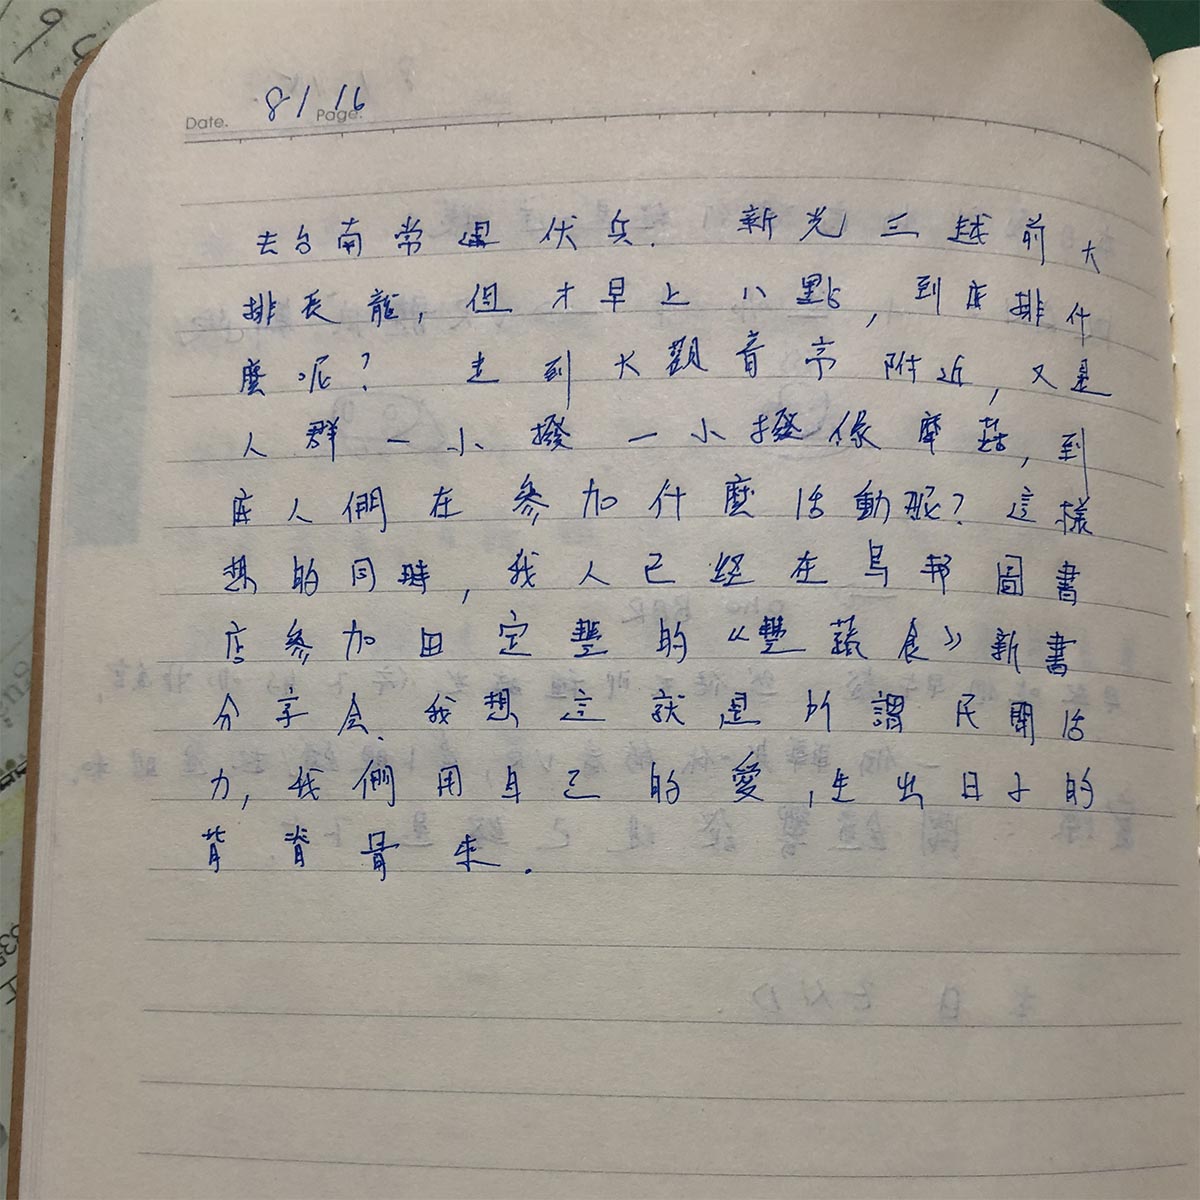 Date. 8/16 Page.
去台南常遇伏兵. 新光三越前大
排長龍, 但才早上八點, 到底排什
麼呢? 走到大觀音亭附近, 又是
人群一小撥一小撥像蘑菇, 到
底人們在參加什麼活動呢? 這樣
想的同時, 我人已經在烏邦圖書
店參加田定豐的《豐蔬食》新書
分享會. 我想這就是所謂民間活
力, 我們用自己的愛, 生出日子的
背脊骨來.